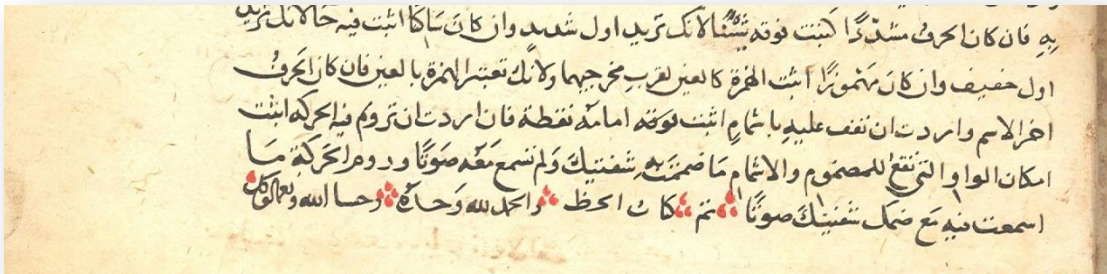 به فان كان الحرف مشدّدًا كتبت فوقه شينًا لانك تريد اول شديد وان كان ساكنًا اثبت فيه خا لانك تريد
اول خفيف وان كان مهموزًا اثبت الهمزة كالعين لقرب مخرجيهما ولانك تعتبر الهمزة بالعين فان كان الحرف
اخر الاسم واردت ان تقف عليه باشمامٍ اثبت فوقه امامه نقطة فان اردت ان تروم فيه الحركة اثبت
مكان الواو التي تقع للمضموم والاشمام ما ضممت به شفتيك ولم تسمع معه صوتًا وروم الحركة ما
اسمعت فيه مع ضمك شفتيك صوتًا تم كتاب الخط والحمد لله وحده وحسبنا الله ونعم الوكيل